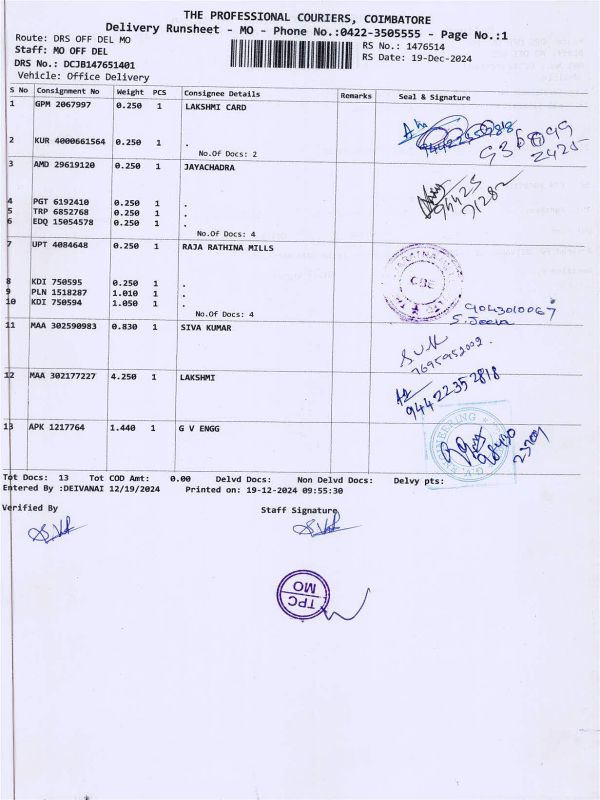 THE PROFESSIONAL COURIERS, COIMBATORE
Delivery Runsheet - MO - Phone No.:0422-3505555 - Page No.:1
Route: DRS OFF DEL MO
RS No.: 1476514
Staff: MO OFF DEL
RS Date: 19-Dec-2024
DRS No.: DCJB147651401
Vehicle: Office Delivery
S No Consignment No Weight PCS Consignee Details Remarks Seal & Signature
1 GPM 2067997 0.250 1 LAKSHMI CARD
2 KUR 4000661564 0.250 1 .
No.Of Docs: 2
3 AMD 29619120 0.250 1 JAYACHADRA
94425
71282
4 PGT 6192410 0.250 1 .
5 TRP 6852768 0.250 1 .
6 EDQ 15054578 0.250 1 .
No.Of Docs: 4
7 UPT 4084648 0.250 1 RAJA RATHINA MILLS
CBE
8 KDI 750595 0.250 1 .
9 PLN 1518287 1.010 1 .
10 KDI 750594 1.050 1 .
No.Of Docs: 4
9043010067
11 MAA 302590983 0.830 1 SIVA KUMAR
7695952002.
12 MAA 302177227 4.250 1 LAKSHMI
94422352818
13 APK 1217764 1.440 1 G V ENGG
98430
Tot Docs: 13 Tot COD Amt: 0.00 Delvd Docs: Non Delvd Docs: Delvy pts:
Entered By :DEIVANAI 12/19/2024 Printed on: 19-12-2024 09:55:30
Verified By Staff Signature
TPC
MO